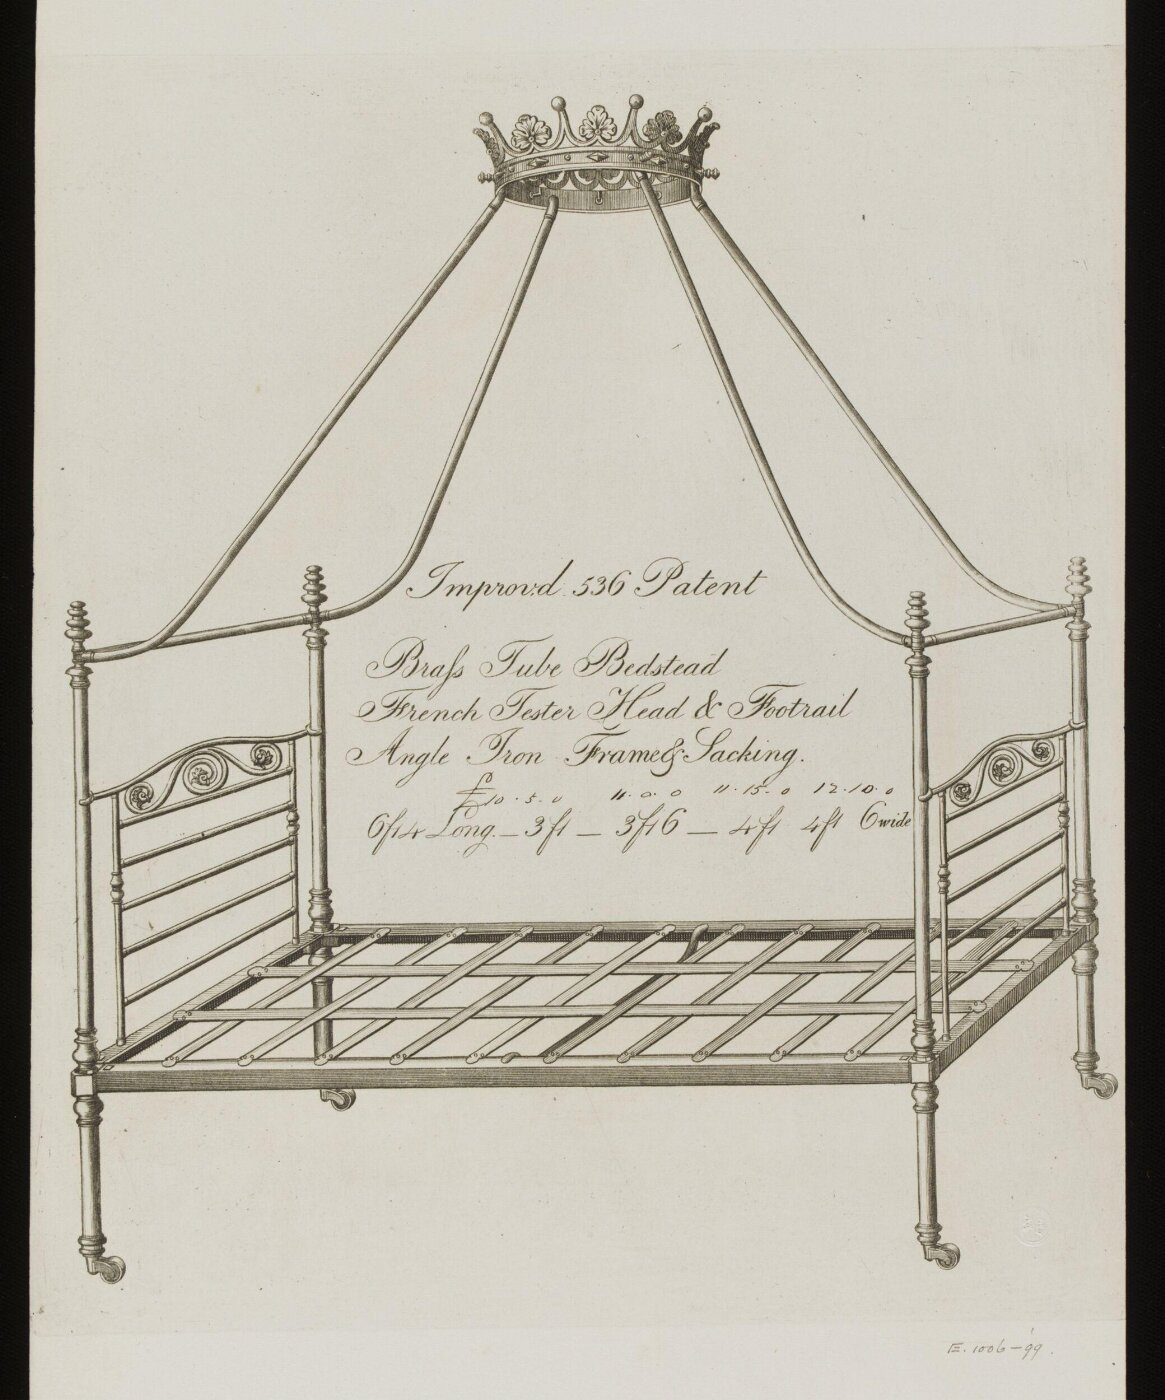 Improv:d 536 Patent
Braſs Tube Bedstead
French Tester Head & Footrail
Angle Iron Frame & Sacking.
£10.5.0 11.0.0 11.15.0 12.10.0
6ft4 Long. – 3ft – 3ft6 – 4ft 4ft 6 wide
E.1006-'99.